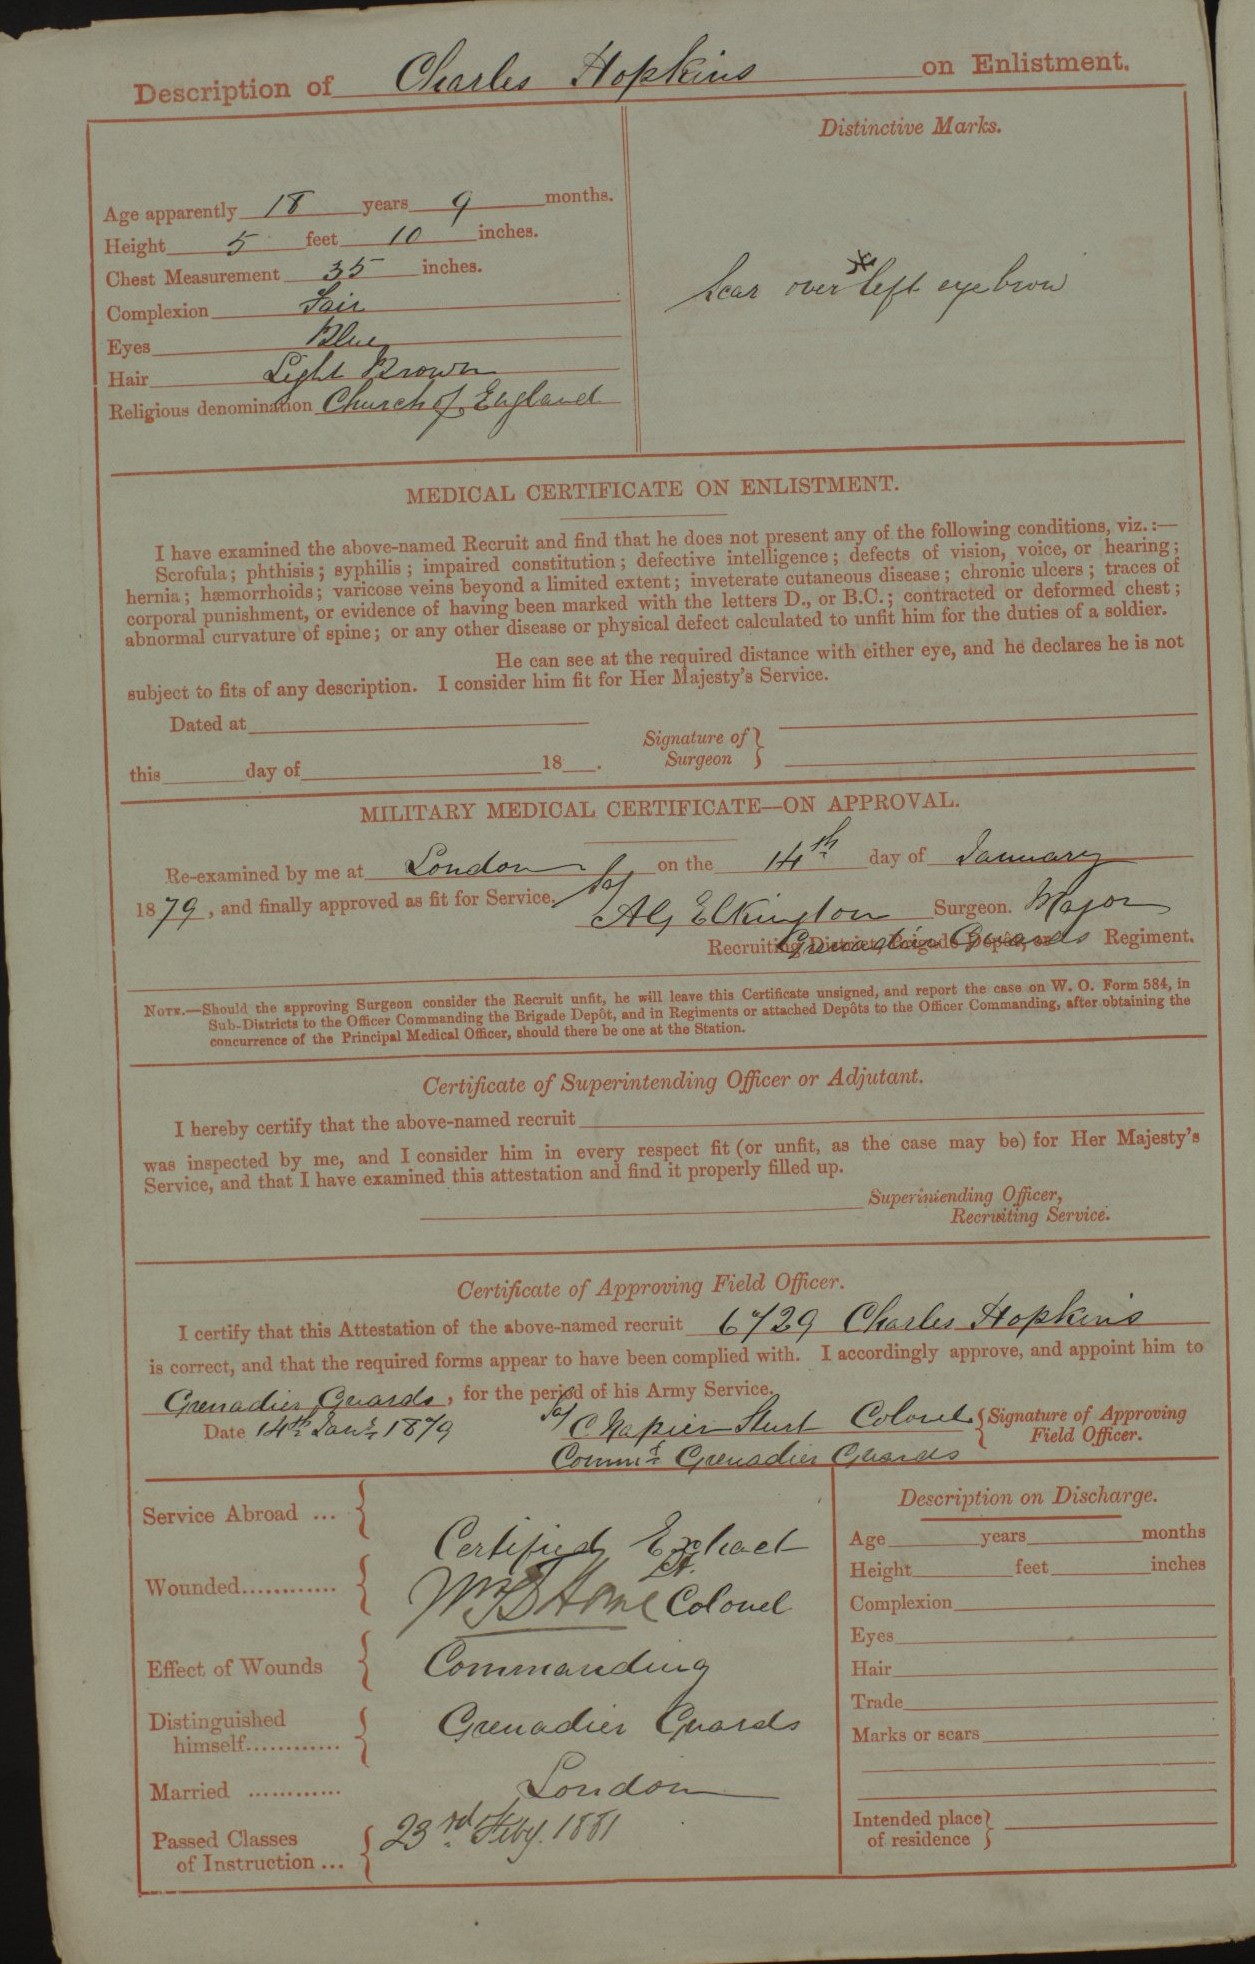 Description of Charles Hopkins on Enlistment.
Distinctive Marks.
Age apparently 18 years 9 months.
Height 5 feet 10 inches.
Chest Measurement 35 inches.
Complexion Fair
Eyes Blue
Hair Light Brown
Religious denomination Church of England
Scar over left eyebrow
MEDICAL CERTIFICATE ON ENLISTMENT.
I have examined the above-named Recruit and find that he does not present any of the following conditions, viz.:—
Scrofula; phthisis; syphilis; impaired constitution; defective intelligence; defects of vision, voice, or hearing;
hernia; hæmorrhoids; varicose veins beyond a limited extent; inveterate cutaneous disease; chronic ulcers; traces of
corporal punishment, or evidence of having been marked with the letters D., or B.C.; contracted or deformed chest;
abnormal curvature of spine; or any other disease or physical defect calculated to unfit him for the duties of a soldier.
He can see at the required distance with either eye, and he declares he is not
subject to fits of any description. I consider him fit for Her Majesty's Service.
Dated at
this day of 18 .
Signature of
Surgeon
MILITARY MEDICAL CERTIFICATE—ON APPROVAL.
Re-examined by me at London on the 14th day of January
1879, and finally approved as fit for Service.
Elkington Surgeon. Major
Recruiting District, Brigade Depôt, or Grenadier Guards Regiment.
NOTE.—Should the approving Surgeon consider the Recruit unfit, he will leave this Certificate unsigned, and report the case on W. O. Form 584, in
Sub-Districts to the Officer Commanding the Brigade Depôt, and in Regiments or attached Depôts to the Officer Commanding, after obtaining the
concurrence of the Principal Medical Officer, should there be one at the Station.
Certificate of Superintending Officer or Adjutant.
I hereby certify that the above-named recruit
was inspected by me, and I consider him in every respect fit (or unfit, as the case may be) for Her Majesty's
Service, and that I have examined this attestation and find it properly filled up.
Superintending Officer,
Recruiting Service.
Certificate of Approving Field Officer.
I certify that this Attestation of the above-named recruit 6729 Charles Hopkins
is correct, and that the required forms appear to have been complied with. I accordingly approve, and appoint him to
Grenadier Guards, for the period of his Army Service.
Date 14th Jany 1879
C Napier Sturt Colonel Signature of Approving
Field Officer.
Commg Grenadier Guards
Service Abroad ...
Wounded............
Effect of Wounds
Distinguished
himself............
Married ............
Passed Classes
of Instruction ...
Certified Extract
Lt.
Home Colonel
Commanding
Grenadier Guards
London
23rd Feby. 1881
Description on Discharge.
Age years months
Height feet inches
Complexion
Eyes
Hair
Trade
Marks or scars
Intended place
of residence